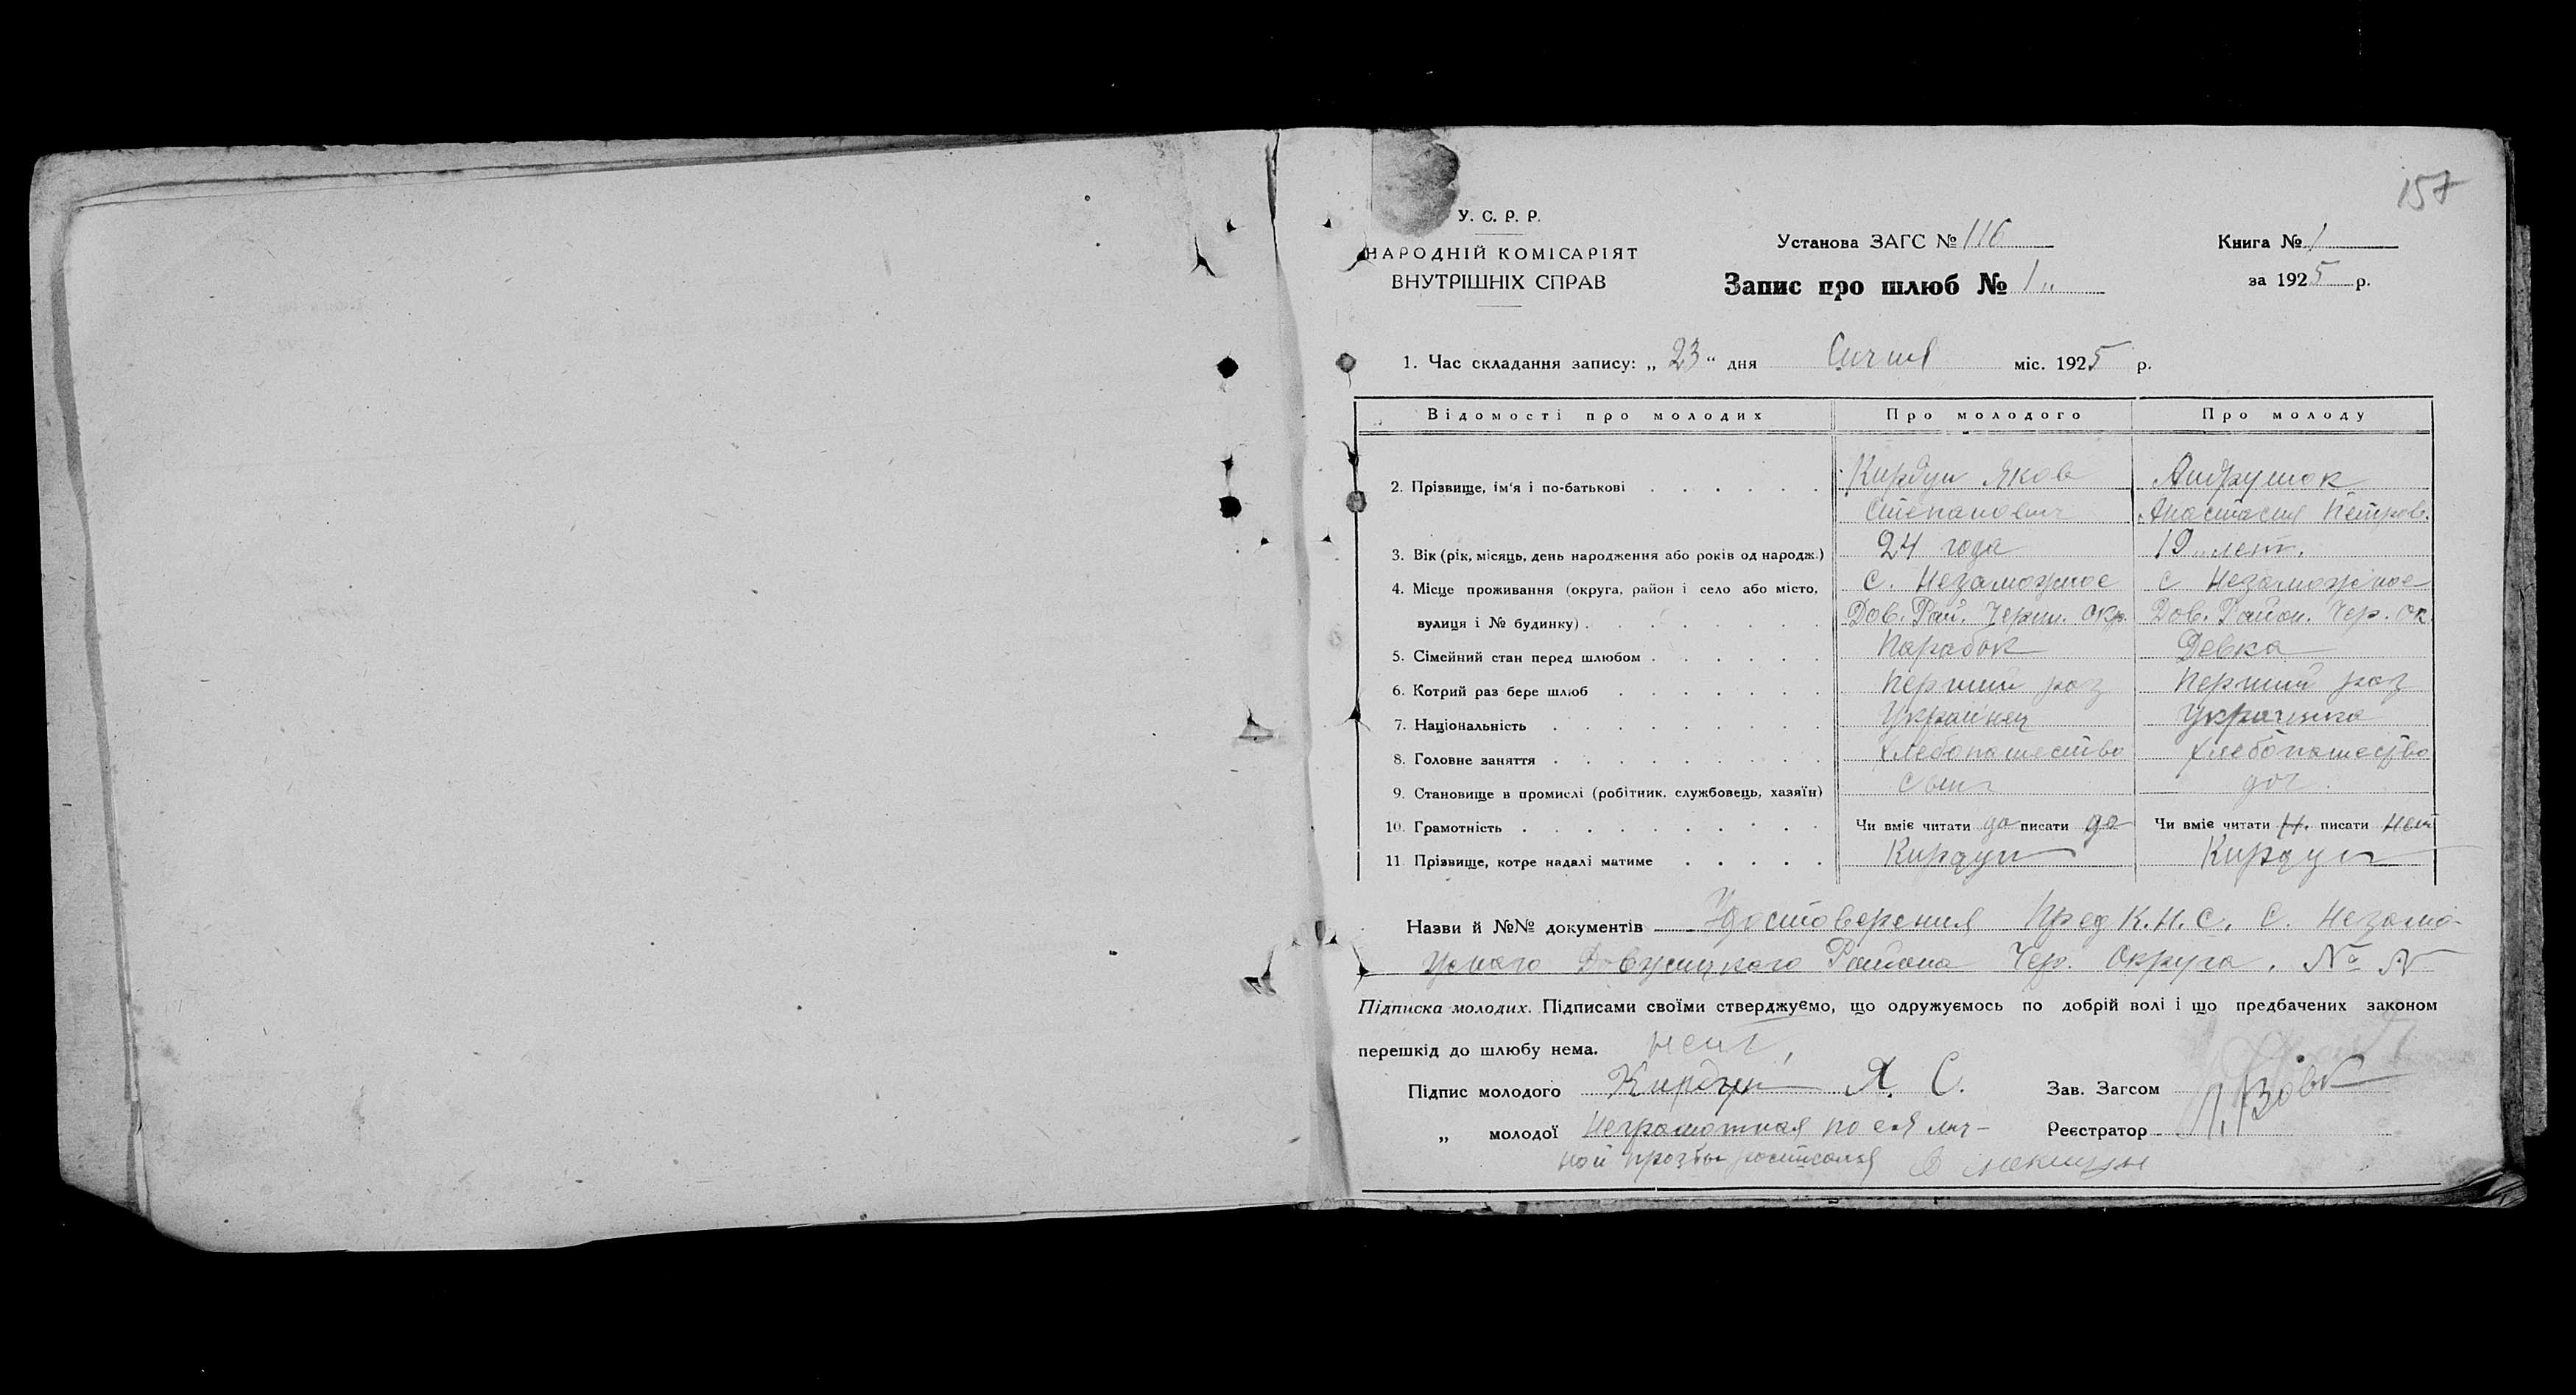 157
У. С. Р. Р.
НАРОДНІЙ КОМІСАРІЯТ
ВНУТРІШНІХ СПРАВ
Установа ЗАГС № 116
Запис про шлюб № 1
Книга № 1
за 1925 р.
1. Час складання запису: „ 23 “ дня Сичня міс. 1925 р.
Відомості про молодих Про молодого Про молоду
2. Прізвище, ім'я і по-батькові Кирдун Яков Андрушок
Степанович Анастасия Петров.
3. Вік (рік, місяць, день народження або років од народж.) 24 года 19 лет.
4. Місце проживання (округа, район і село або місто, с. Незаможное с Незаможное
вулиця і № будинку) Дов. Рай. Черн. Окр. Дов. Район. Чер. Ок.
5. Сімейний стан перед шлюбом Парабок Девка
6. Котрий раз бере шлюб Перший раз Перший раз
7. Національність Украинец Украинка
8. Головне заняття Хлебопашество Хлебопашество
9. Становище в промислі (робітник, службовець, хазяїн) сын доч.
10. Грамотність Чи вміє читати да писати да Чи вміє читати Н. писати Нет
11. Прізвище, котре надалі матиме Кирдун Кирдун
Назви й №№ документів Удостоверения Пред К.Н.С. С. Незамо-
жнаго Района Чер. Округа. № №
Підписка молодих. Підписами своїми стверджуємо, що одружуємось по добрій волі і що предбачених законом
перешкід до шлюбу нема. нет
Підпис молодого Кирдун Я. С. Зав. Загсом
„ молодої Неграмотная по ея лич- Реєстратор
ной прозбы